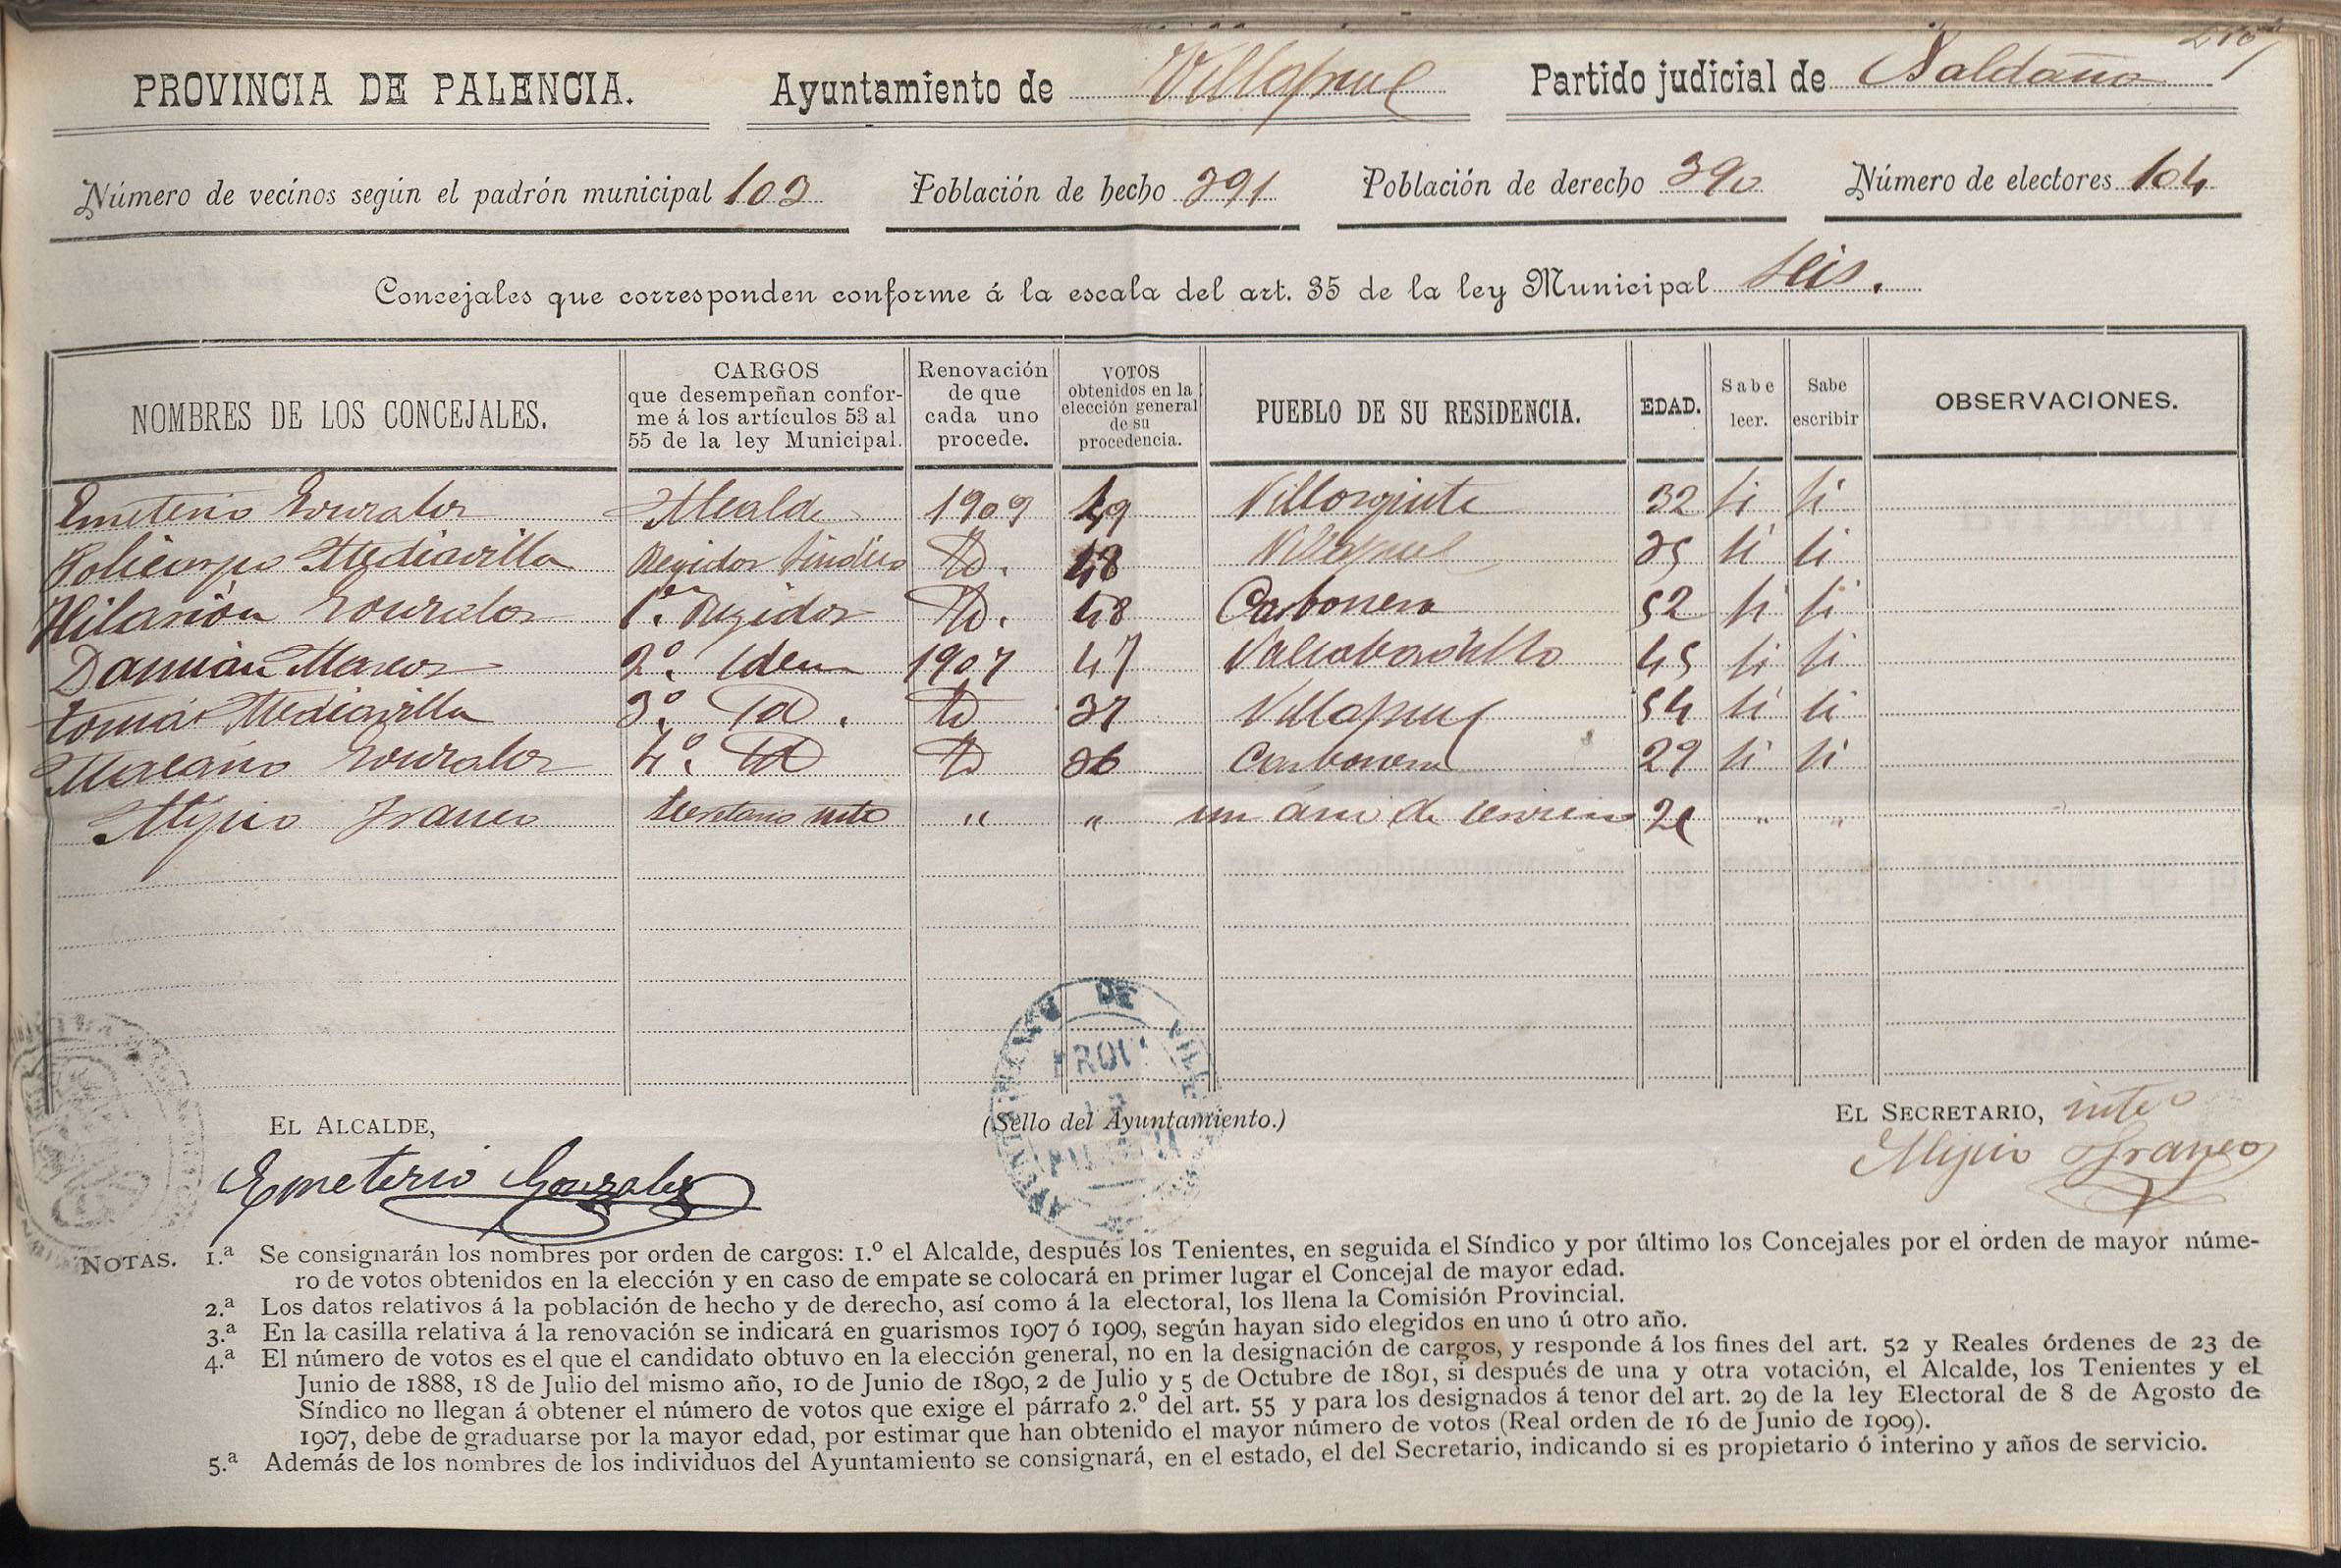 PROVINCIA DE PALENCIA. Ayuntamiento de Villaprul Partido judicial de Saldaña
Número de vecinos según el padrón municipal 103 Población de hecho 391 Población de derecho 390 Número de electores 104
Concejales que corresponden conforme á la escala del art. 35 de la ley Municipal seis.
NOMBRES DE LOS CONCEJALES. CARGOS que desempeñan confor-me á los artículos 53 al 55 de la ley Municipal. Renovación de que cada uno procede. VOTOS obtenidos en la elección general de su procedencia. PUEBLO DE SU RESIDENCIA. EDAD. Sabe leer. Sabe escribir OBSERVACIONES.
Emeterio Gonzalez Alcalde 1909 49 Villorquite 32 si si
Policarpo Mediavilla Regidor Sindico Id. 48 Villaprul 35 si si
Hilarión Gonzalez 1.er Regidor Id. 48 Carbonera 52 si si
Damián Marcos 2º. Idem 1907 47 Valcabadillo 45 si si
Tomás Mediavilla 3º. Id. Id 37 Villaprul 54 si si
Macario Gonzalez 4º. Id Id 36 Carbonera 29 si si
Franco Secretario intº " " un año de servicio " "
EL ALCALDE, (Sello del Ayuntamiento.) EL SECRETARIO, intº
Emeterio Gonzalez Franco
NOTAS. 1.ª Se consignarán los nombres por orden de cargos: 1.º el Alcalde, después los Tenientes, en seguida el Síndico y por último los Concejales por el orden de mayor núme-
ro de votos obtenidos en la elección y en caso de empate se colocará en primer lugar el Concejal de mayor edad.
2.ª Los datos relativos á la población de hecho y de derecho, así como á la electoral, los llena la Comisión Provincial.
3.ª En la casilla relativa á la renovación se indicará en guarismos 1907 ó 1909, según hayan sido elegidos en uno ú otro año.
4.ª El número de votos es el que el candidato obtuvo en la elección general, no en la designación de cargos, y responde á los fines del art. 52 y Reales órdenes de 23 de
Junio de 1888, 18 de Julio del mismo año, 10 de Junio de 1890, 2 de Julio y 5 de Octubre de 1891, si después de una y otra votación, el Alcalde, los Tenientes y el
Síndico no llegan á obtener el número de votos que exige el párrafo 2.º del art. 55 y para los designados á tenor del art. 29 de la ley Electoral de 8 de Agosto de
1907, debe de graduarse por la mayor edad, por estimar que han obtenido el mayor número de votos (Real orden de 16 de Junio de 1909).
5.ª Además de los nombres de los individuos del Ayuntamiento se consignará, en el estado, el del Secretario, indicando si es propietario ó interino y años de servicio.